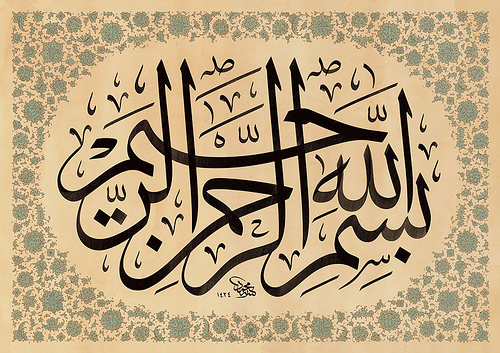 بسم الله الرحمن الرحيم
١٤٢٤